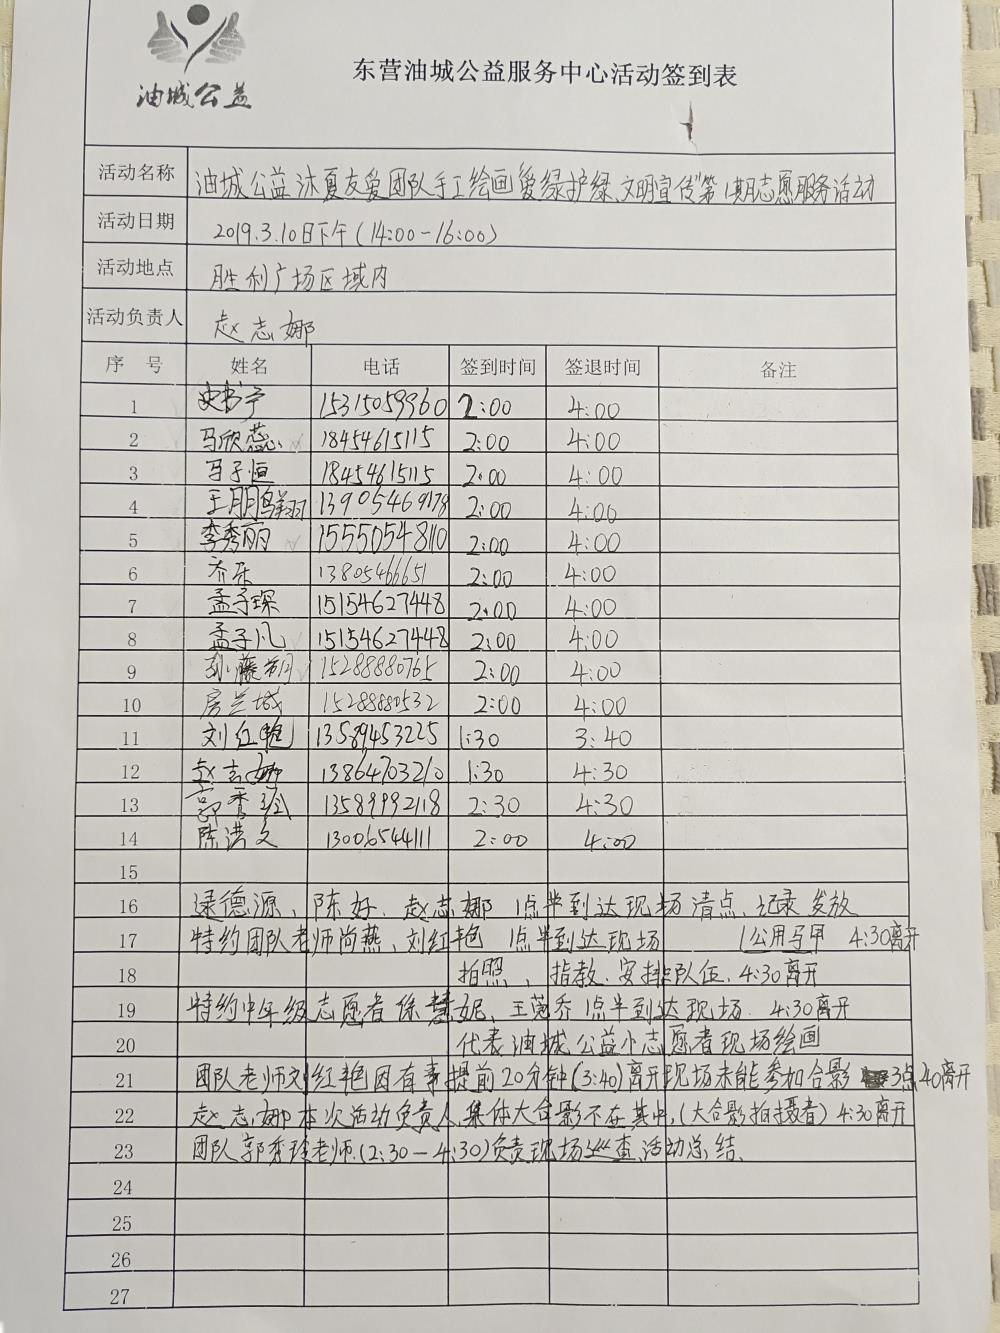 油城公益
东营油城公益服务中心活动签到表
活动名称 油城公益沐夏友爱团队手工绘画"爱绿护绿、文明宣传"第1期志愿服务活动
活动日期 2019.3.10日下午(14:00-16:00)
活动地点 胜利广场区域内
活动负责人 赵志娜
序 号 姓名 电话 签到时间 签退时间 备注
1 史书宁 15315059960 2:00 4:00
2 马欣蕊 18454615115 2:00 4:00
3 马子恒 18454615115 2:00 4:00
4 王鹏翔 13905469178 2:00 4:00
5 李秀丽 15550548110 2:00 4:00
6 齐乐 13805466651 2:00 4:00
7 孟子琛 15154627448 2:00 4:00
8 孟子凡 15154627448 2:00 4:00
9 刘藤朝 15288880765 2:00 4:00
10 房兰城 15288880532 2:00 4:00
11 刘红艳 13589453225 1:30 3:40
12 赵志娜 13864703210 1:30 4:30
13 郭秀玲 13589992118 2:30 4:30
14 陈洪文 13006544111 2:00 4:00
15
16 逯德源、陈好、赵志娜 1点半到达现场清点、记录发放
17 特约团队老师尚燕、刘红艳 1点半到达现场 公用马甲 4:30离开
18 拍照、指教、安排队伍、4:30离开
19 特约中年级志愿者徐慧妮、王菀乔1点半到达现场. 4:30离开
20 代表油城公益小志愿者现场绘画
21 团队老师刘红艳因有事提前20分钟(3:40)离开现场未能参加合影 3点40离开
22 赵志娜本次活动负责人,集体大合影不在其中,(大合影拍摄者) 4:30离开
23 团队郭秀玲老师.(2:30-4:30)负责现场巡查、活动总结、
24
25
26
27